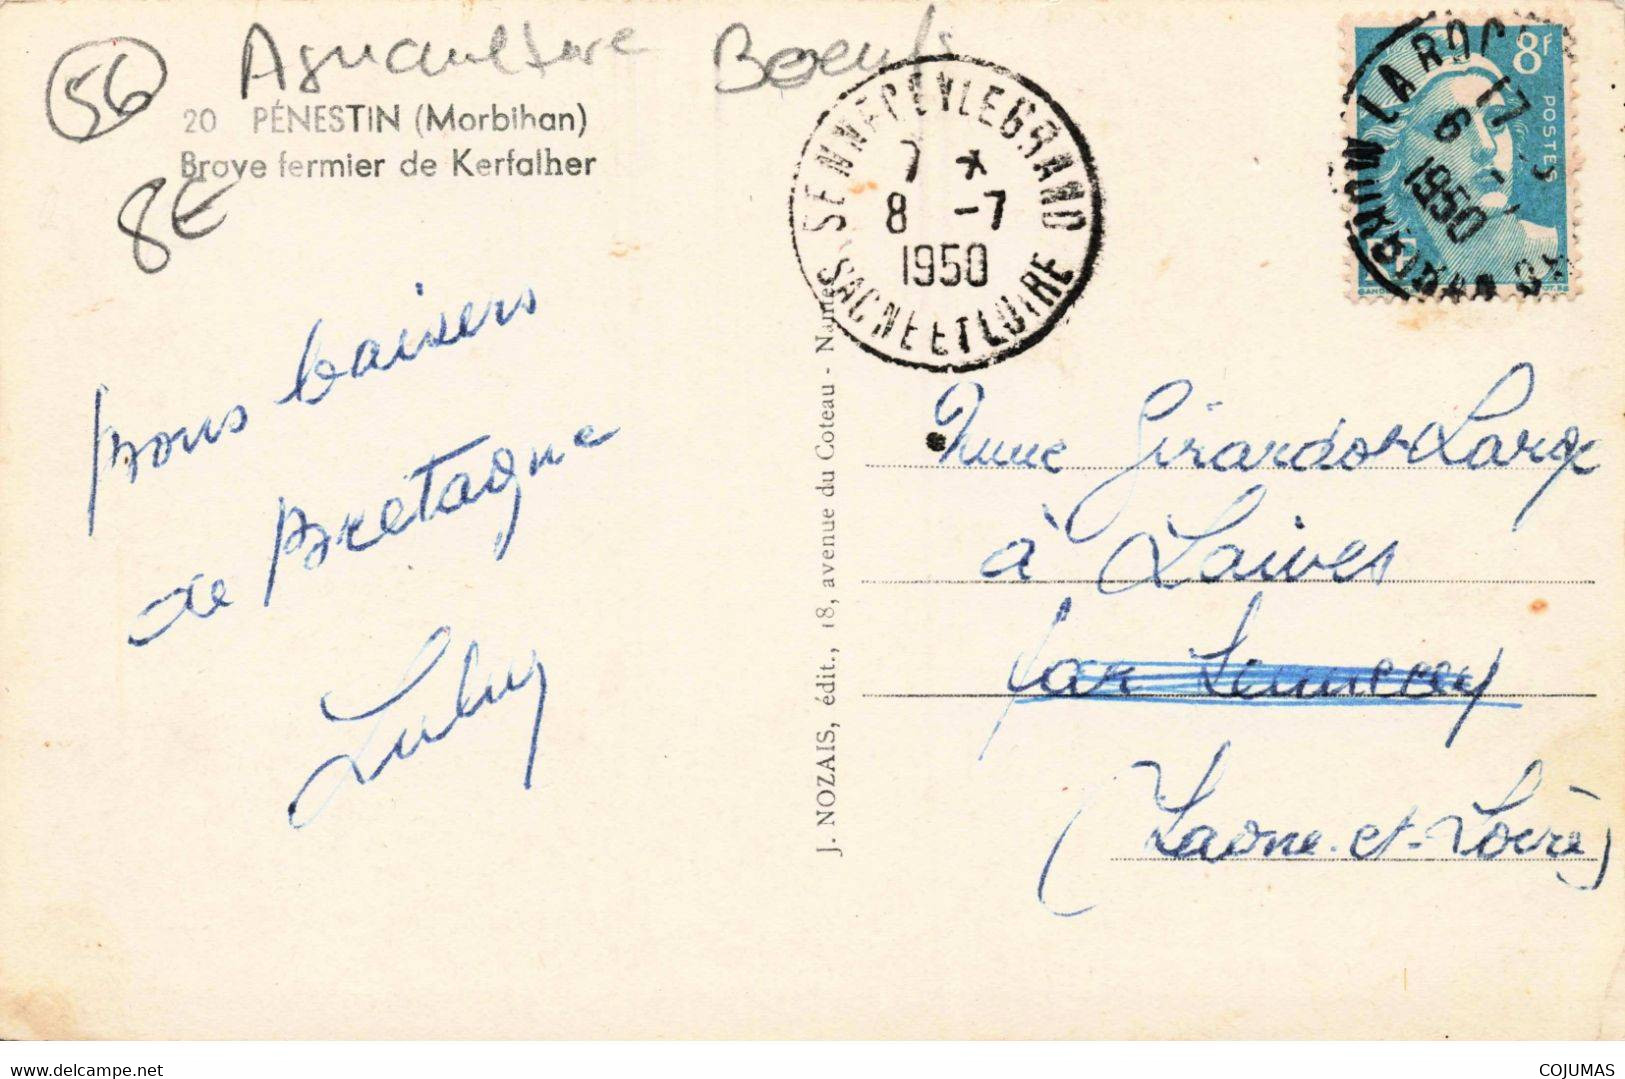 56 Agriculture Boeufs
20 PÉNESTIN (Morbihan)
Brave fermier de Kerfalher
8€
bons baisers
de Bretagne
J. NOZAIS, édit., 18, avenue du Coteau - Nantes
SENNECEY LE GRAND
7 *
8 -7
1950
SAONE ET LOIRE
8f
POSTES
LA ROCHE
MORBIHAN
17
6
1950
Mme Girardot Large
à Laives
par Sennecey
(Saône-et-Loire)
COJUMAS